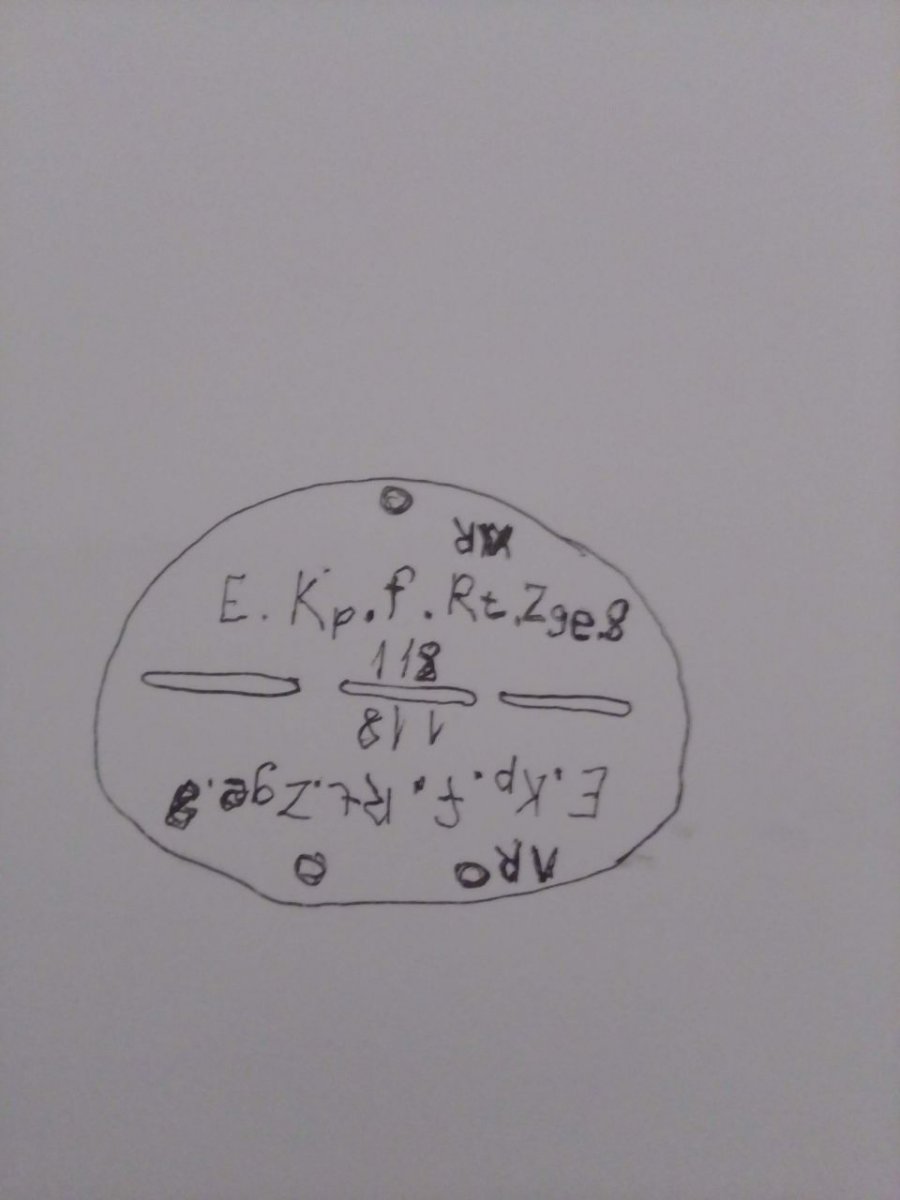 E. Kp. f. Rt. Zge. 8
118
118
E. Kp. f. Rt. Zge. 8